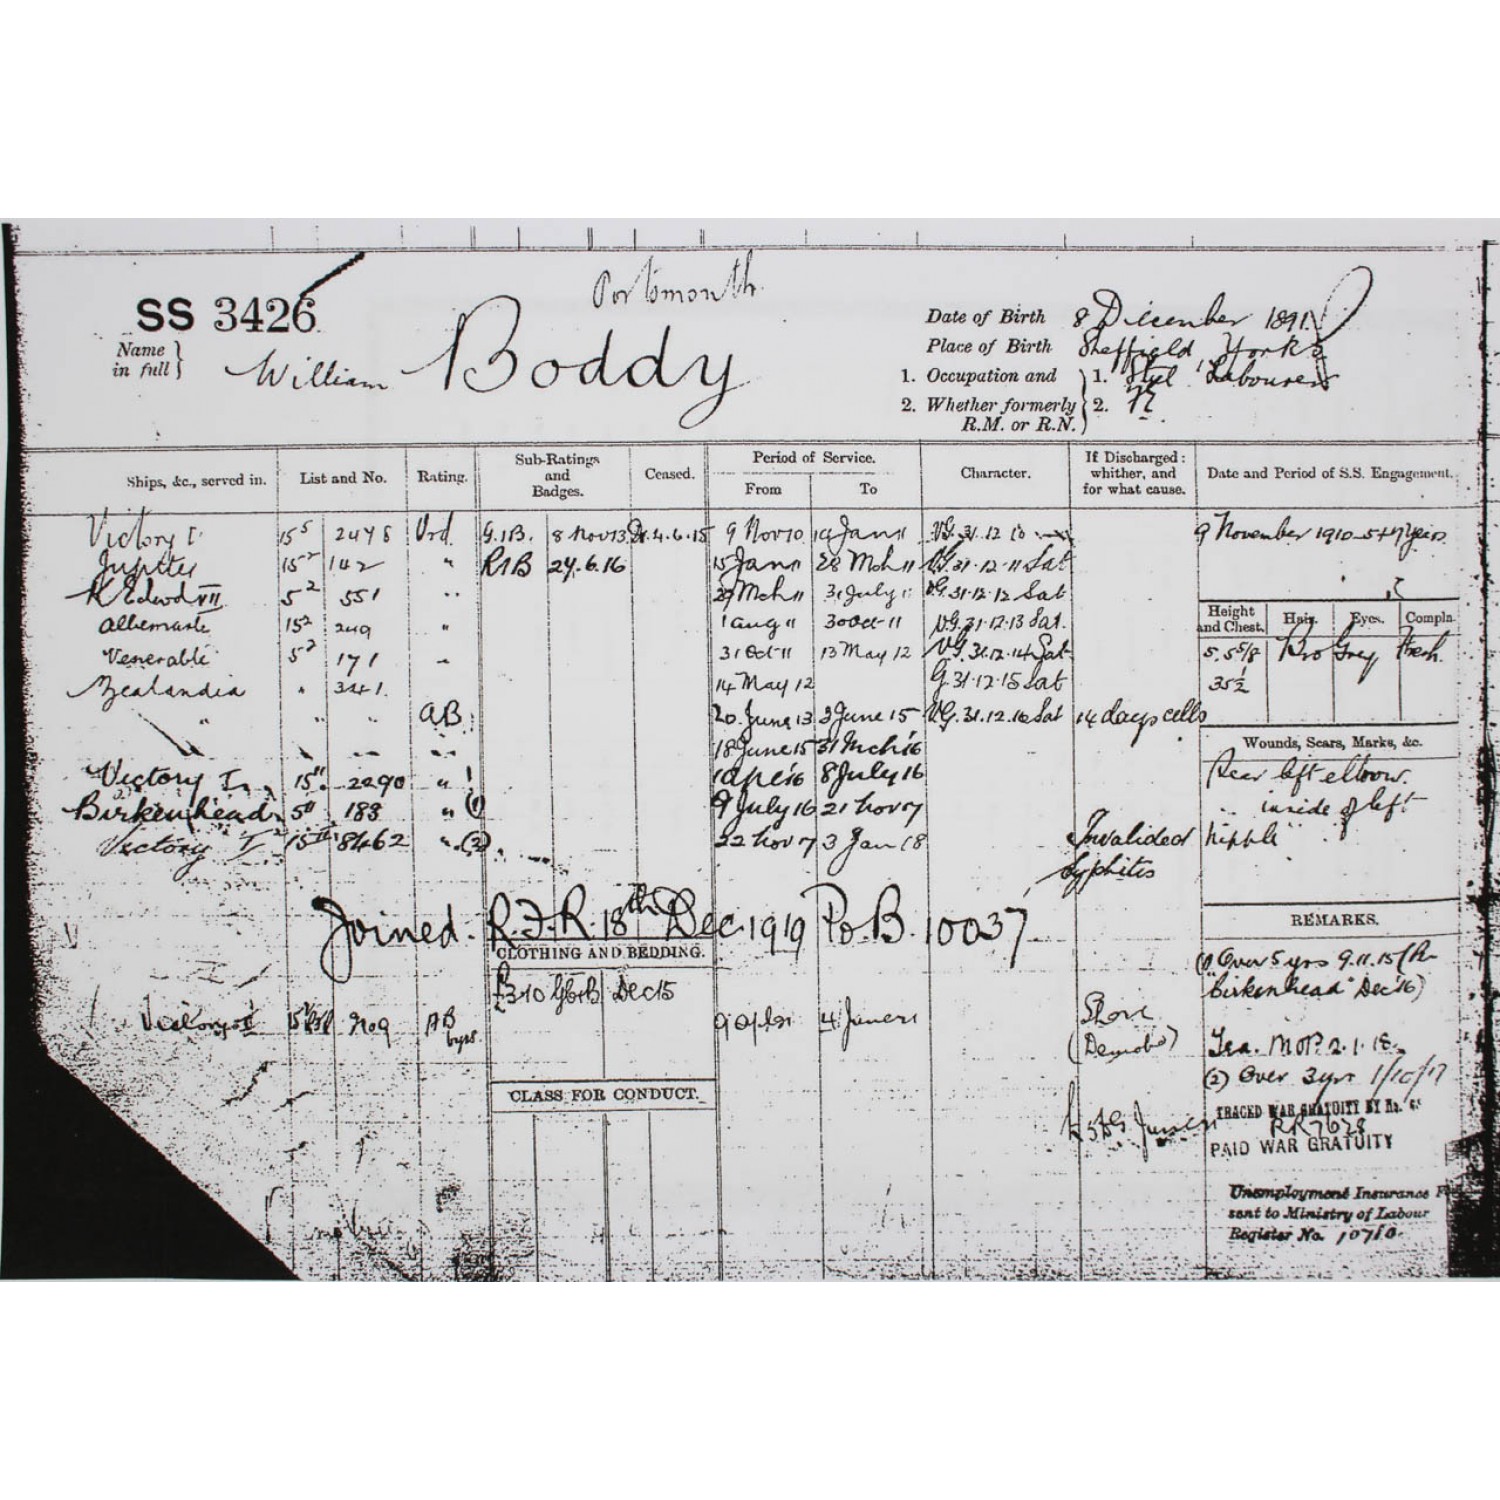 Portsmouth
SS 3426
Name in full } William Boddy
Date of Birth 8 December 1891
Place of Birth Sheffield, Yorks
1. Occupation and } 1. Steel Labourer
2. Whether formerly R.M. or R.N. } 2.
Ships, &c., served in. List and No. Rating. Sub-Ratings and Badges. Ceased. Period of Service. From To Character. If Discharged: whither, and for what cause. Date and Period of S.S. Engagement.
Victory I 15⁵ 2475 Ord G.1B. 8 Nov 13 4.6.15 9 Nov 10 14 Jan 11 V.G. 31.12.10 9 November 1910 5+7 Years
Jupiter 15² 142 " R1B 24.6.16 15 Jan 11 28 Mch 11 V.G. 31.12.11 Sat
K Edwd VII 5² 551 " 29 Mch 11 31 July 11 V.G. 31.12.12 Sat
Albemarle 15² 249 " 1 Aug 11 30 Oct 11 V.G. 31.12.13 Sat.
Venerable 5² 171 " 31 Oct 11 13 May 12 V.G. 31.12.14 Sat
Zealandia " 341. 14 May 12 G. 31.12.15 Sat
" " " AB 20 June 13 3 June 15 V.G. 31.12.16 Sat 14 days cells
" " " " 18 June 15 31 Mch 16
Victory I 15¹¹ 2290 " 1 Apl 16 8 July 16
Birkenhead 5¹¹ 183 " (1) 9 July 16 21 Nov 17
Victory I 15¹¹ 8462 " (2) 22 Nov 17 3 Jan 18 Invalided
Syphilis
Height and Chest. Hair. Eyes. Compln.
5. 5 5/8 Bro Grey Fresh.
35½
Wounds, Scars, Marks, &c.
Scar left elbow.
" inside of left
nipple
Joined R.F.R. 18th Dec. 1919 Po.B. 10037
CLOTHING AND BEDDING.
Dec 15
Victory I AB Shore
(Demob)
CLASS FOR CONDUCT.
REMARKS.
(1) Over 5 yrs 9.11.15
"Birkenhead" Dec 16)
M of P. 2.1.18.
(2) Over 3 yrs 1/10/17
TRACED WAR GRATUITY BY
RR 7628
PAID WAR GRATUITY
Unemployment Insurance
sent to Ministry of Labour
Register No. 10710